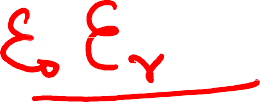 ε₀ εᵣ